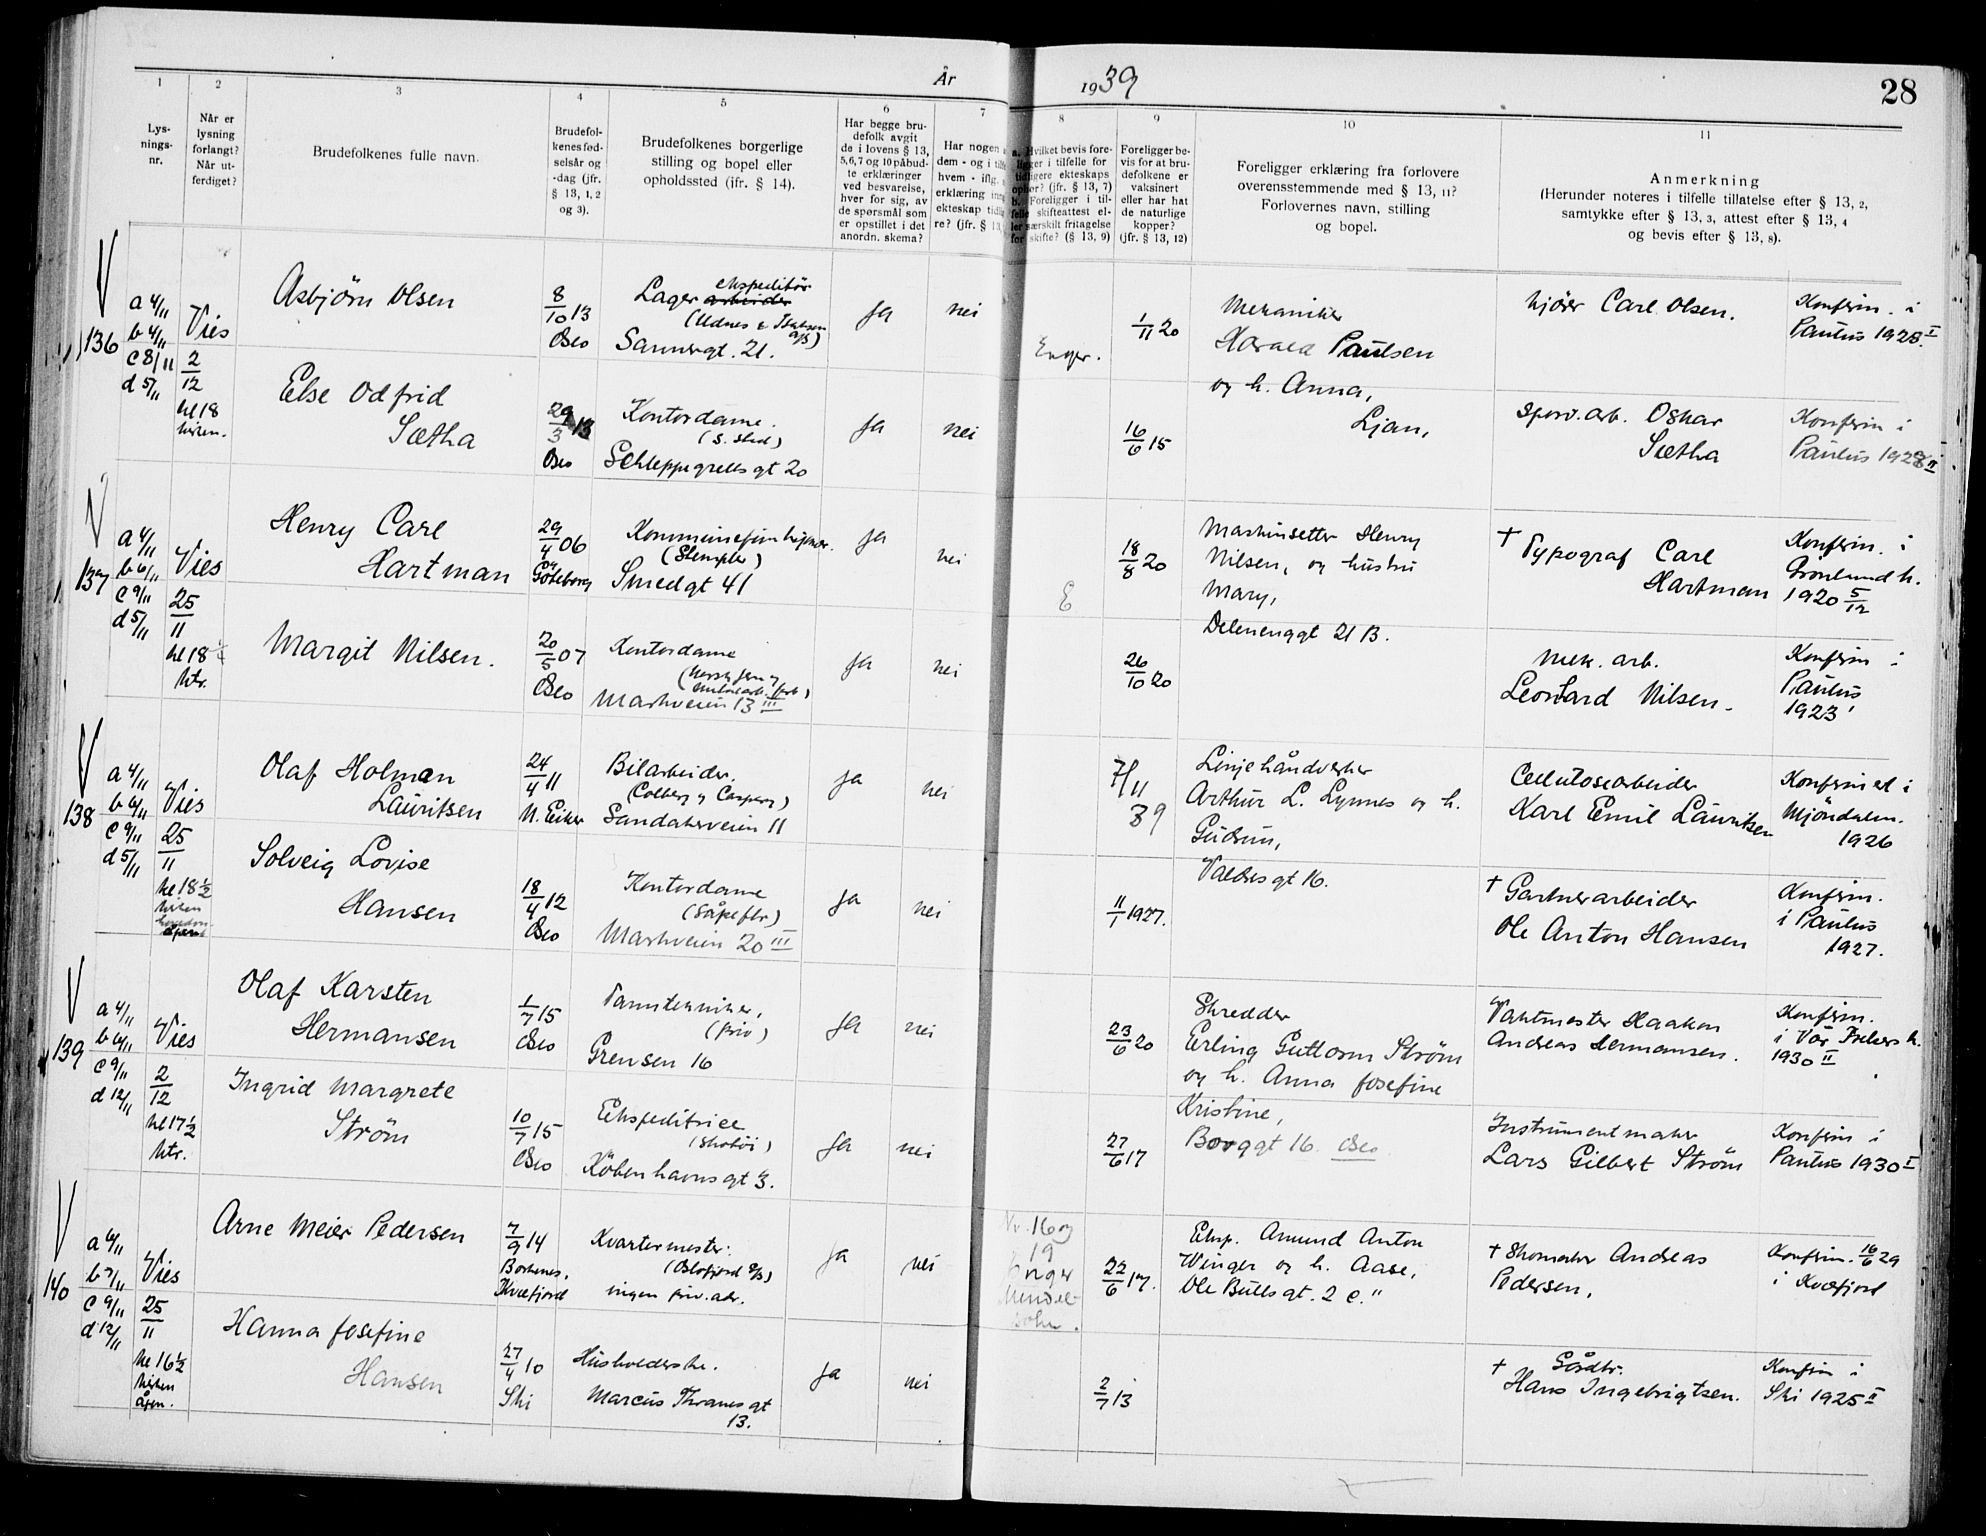 År 1939
28
1
2
3
4
5
6
7
8
9
10
11
Lys-
nings-
nr.
Når er
lysning
forlangt?
Når ut-
ferdiget?
Brudefolkenes fulle navn.
Brudefol-
kenes fød-
selsår og
-dag (jfr.
§ 13, 1, 2
og 3).
Brudefolkenes borgerlige
stilling og bopel eller
opholdssted (ifr. § 14).
Har begge bru-
defolk avgit
de i lovens § 13,
5, 6, 7 og 10 påbud-
te erklæringer
ved besvarelse,
hver for sig, av
de spørsmål som
er opstillet i det
anordn. skema?
Har nogen
dem - og i
hvem - iflg.
erklæring
ekteskap
re? (jfr. § 13,
a. Hvilket bevis fore-
ligger i tilfelle for
tidligere ekteskaps
ophør? (jfr. § 13, 7)
b. Foreligger i til-
felle skifteattest el-
ler særskilt fritagelse
for skifte? (§ 13, 9)
Foreligger be-
vis for at bru-
defolkene er
vaksinert
eller har hat
de naturlige
kopper?
(jfr. § 13, 12)
Foreligger erklæring fra forlovere
overensstemmende med § 13, 11?
Forlovernes navn, stilling
og bopel.
Anmerkning
(Herunder noteres i tilfelle tillatelse efter § 13, 2,
samtykke efter § 13, 3, attest efter § 13, 4
og bevis efter § 13, 8).
136
a 4/11
b 4/11
c 8/11
d 5/11
Vies
2/12
kl 18
kirken.
Asbjørn Olsen
8/10 13
Oslo
Lager arbeider ekspeditør
(Udnes & Isaksen
A/S)
Sannergt. 21.
Ja
nei
Enger.
1/11 20
Mekaniker
Harald Paulsen
og h. Anna,
Ljan,
Kjører Carl Olsen.
Konfirm. i
Paulus 1928 I
Else Odfrid
Sætha
29/3 13
Oslo
Kontordame.
Schleppegrells gt 20
Ja
nei
16/6 15
Sporv.arb. Oskar
Sætha
Konfirm i
Paulus 1928 II
137
a 4/11
b 6/11
c 9/11
d 5/11
Vies
25/11
kl 18 1/4
ktr.
Henry Carl
Hartman
29/4 06
Göteborg
(Stempler)
Smedgt 41
Ja
nei
E
18/8 20
Maskinsetter Henry
Nilsen, og hustru
Mary,
Delenenggt 21 B.
† Typograf Carl
Hartman
Konfirm. i
Grønland k.
1920 5/12
Margit Nilsen.
20/5 07
Oslo
Kontordame
Markveien 13 III
Ja
nei
26/10 20
Mek. arb.
Leonard Nilsen.
Konfirm i
Paulus
1923
138
a 4/11
b 6/11
c 9/11
d 5/11
Vies
25/11
kl 18 1/2
kirken
Olaf Holman
Lauritsen
24/4 11
N. Eiker
Bilarbeider.
(Colberg & Caspary)
Sandakerveien 11
Ja
nei
7/11
39
Linjehåndverker
Arthur L. Lynnes og h.
Gudrun,
Valdresgt 16.
Cellulosearbeider
Karl Emil Lauritsen
Konfirmert i
Mjøndalen.
1926
Solveig Lovise
Hansen
18/4 12
Oslo
Kontordame
(Såpefbr)
Markveien 20 III
Ja
nei
11/1 1927.
† Gartnerarbeider
Ole Anton Hansen
Konfirm.
i Paulus
1927.
139
a 4/11
b 6/11
c 9/11
d 12/11
Vies
2/12
kl 17 1/2
ktr.
Olaf Karsten
Hermansen
1/7 15
Oslo
Tanntekniker,
(priv)
Grensen 16
Ja
nei
23/6 20
Skredder
Erling Guttorm Strøm
og h. Anna Josefine
Kristine,
Borggt 16. Oslo.
Vaktmester Haakon
Andreas Hermansen.
Konfirm.
i Vår Frelsers k.
1930 II
Ingrid Margrete
Strøm
10/7 15
Oslo
Ekspeditrice
(Skotøi)
Københavnsgt 3.
Ja
nei
27/6 17
Instrumentmaker
Lars Gilbert Strøm
Konfirm i
Paulus 1930 I
140
a 6/11
b 7/11
c 9/11
d 12/11
Vies
25/11
kl 16 1/2
kirken
åpen.
Arne Meier Pedersen
7/9 14
Borkenes,
Kvæfjord
Kvartermester.
(Oslofjord A/S)
ingen priv. adr.
Ja
nei
Nr. 16 og
19
Enger
22/6 17.
Eksp. Amund Anton
Winger og h. Aase,
Ole Bulls gt. 2 c."
† Skomaker Andreas
Pedersen,
Konfirm. 16/6 29
i Kvæfjord
Hanna Josefine
Hansen
27/4 10
Ski
Husholderske.
Marcus Thranes gt
13.
Ja
nei
2/7 13
† Gårdbr.
Hans Ingebrigtsen.
Konfirm i
Ski 1925 II